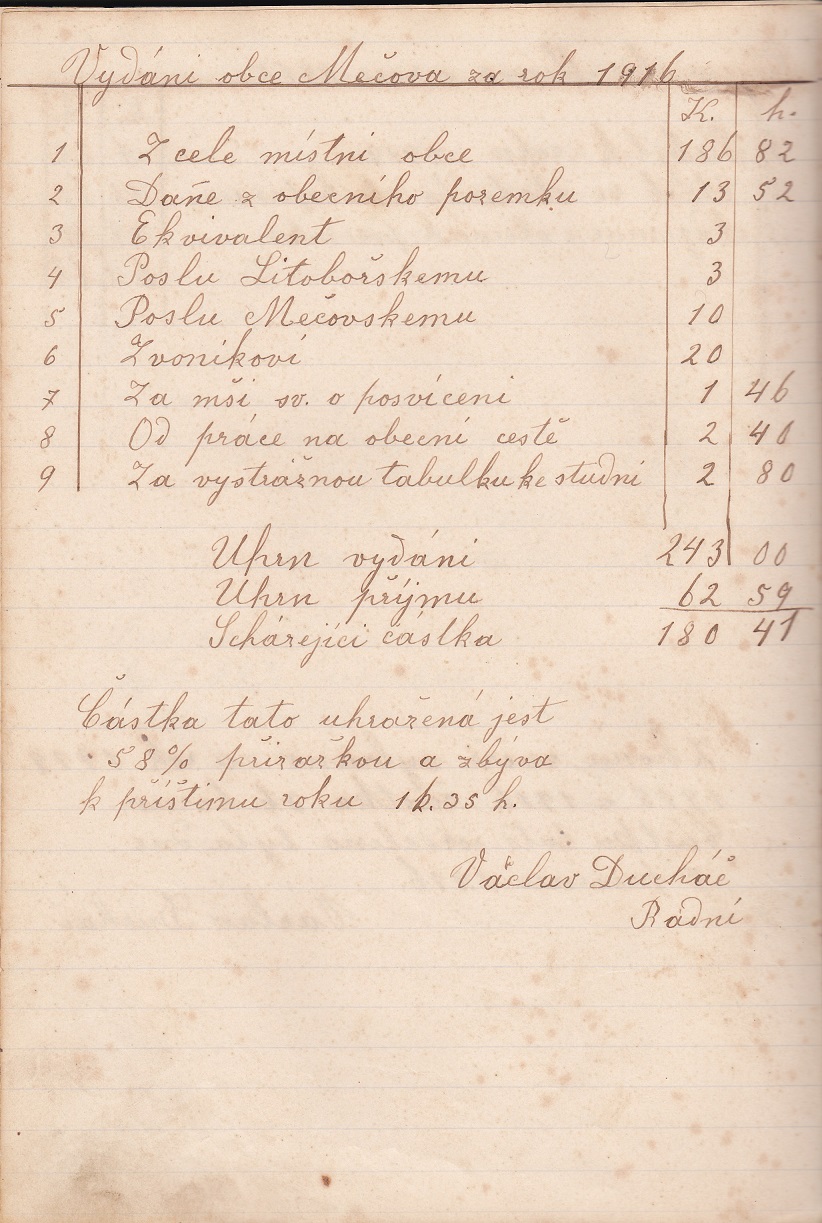 Vydáni obce Mečova za rok 1916
K. h.
1 Z cele místní obce 186 82
2 Daňe z obecního pozemku 13 52
3 Ekvivalent 3
4 Poslu Litobořskemu 3
5 Poslu Mečovskemu 10
6 Zvoníkoví 20
7 Za mši sv. o posvíceni 1 46
8 Od práce na obecní cestě 2 40
9 Za vystrážnou tabulku ke studni 2 80
Uhrn vydáni 243 00
Uhrn příjmu 62 59
Scházejíci částka 180 41
Částka tato uhražená jest
58% přirážkou a zbýva
k příštimu roku 1k. 35 h.
Václav Ducháč
Radní